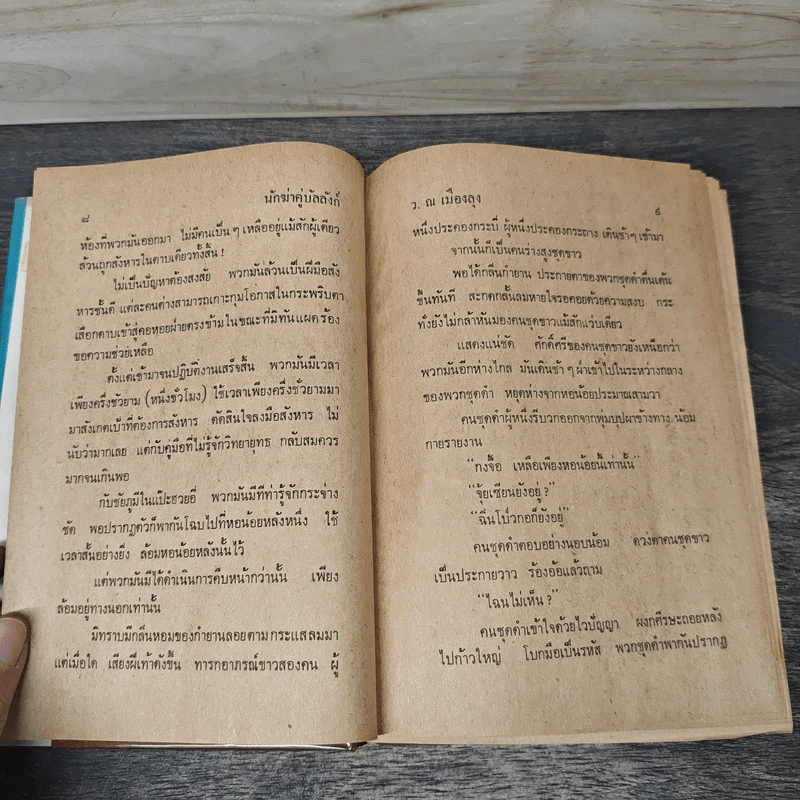 ๘ นักฆ่าคู่บัลลังก์
ห้องที่พวกมันออกมา ไม่มีคนเป็น ๆ เหลืออยู่แม้สักผู้เดียว
ล้วนถูกสังหารในคาบเดียวทั้งสิ้น !
ไม่เป็นปัญหาต้องสงสัย พวกมันล้วนเป็นฝีมือสัง
หารชั้นดี แต่ละคนต่างสามารถเกาะกุมโอกาสในกระพริบตา
เลือกดาบเข้าสู่คอหอยฝ่ายตรงข้ามในขณะที่มิทันแผดร้อง
ขอความช่วยเหลือ
ตั้งแต่เข้ามาจนปฏิบัติงานเสร็จสิ้น พวกมันมีเวลา
เพียงครึ่งชั่วยาม (หนึ่งชั่วโมง) ใช้เวลาเพียงครึ่งชั่วยามมา
มาสังเกตเป้าที่ต้องการสังหาร ตัดสินใจลงมือสังหาร ไม่
นับว่ามากเลย แต่กับคู่มือที่ไม่รู้จักวิทยายุทธ กลับสมควร
มากจนเกินพอ
กับชัยภูมิในแป๊ะฮวยอี่ พวกมันมีทีท่ารู้จักกระจ่าง
ชัด พอปรากฏตัวก็พากันโฉบไปที่หอน้อยหลังหนึ่ง ใช้
เวลาสั้นอย่างยิ่ง ล้อมหอน้อยหลังนั้นไว้
แต่พวกมันมิได้ดำเนินการคืบหน้ากว่านั้น เพียง
ล้อมอยู่ทางนอกเท่านั้น
มิทราบมีกลิ่นหอมของกำยานลอยตามกระแสลมมา
แต่เมื่อใด เสียงฝีเท้าดังขึ้น ทารกอาภรณ์ขาวสองคน ผู้
ว. ณ เมืองลุง ๙
หนึ่งประคองกระบี่ ผู้หนึ่งประคองกระถาง เดินช้าๆ เข้ามา
จากนั้นก็เป็นคนร่างสูงชุดขาว
พอได้กลิ่นกำยาน ประกายตาของพวกชุดดำตื่นเต้น
ขึ้นทันที สะกดกลั้นลมหายใจรอคอยด้วยความสงบ กระ
ทั่งยังไม่กล้าหันมองคนชุดขาวแม้สักแว่บเดียว
แสดงแน่ชัด ศักดิ์ศรีของคนชุดขาวยังเหนือกว่า
พวกมันอีกห่างไกล มันเดินช้า ๆ ผ่าเข้าไปในระหว่างกลาง
ของพวกชุดดำ หยุดห่างจากหอน้อยประมาณสามวา
คนชุดดำผู้หนึ่งรีบวกออกจากพุ่มบุปผาข้างทาง น้อม
กายรายงาน
“กงจื้อ เหลือเพียงหอน้อยนี้เท่านั้น”
“จุ้ยเซียนยังอยู่ ?”
“ฉิ่นโบ้วกอก็ยังอยู่”
คนชุดดำตอบอย่างนอบน้อม ดวงตาคนชุดขาว
เป็นประกายวาว ร้องอ้อแล้วถาม
“ไฉนไม่เห็น ?”
คนชุดดำเข้าใจด้วยไวปัญญา ผงกศีรษะถอยหลัง
ไปก้าวใหญ่ โบกมือเป็นรหัส พวกชุดดำพากันปรากฏ